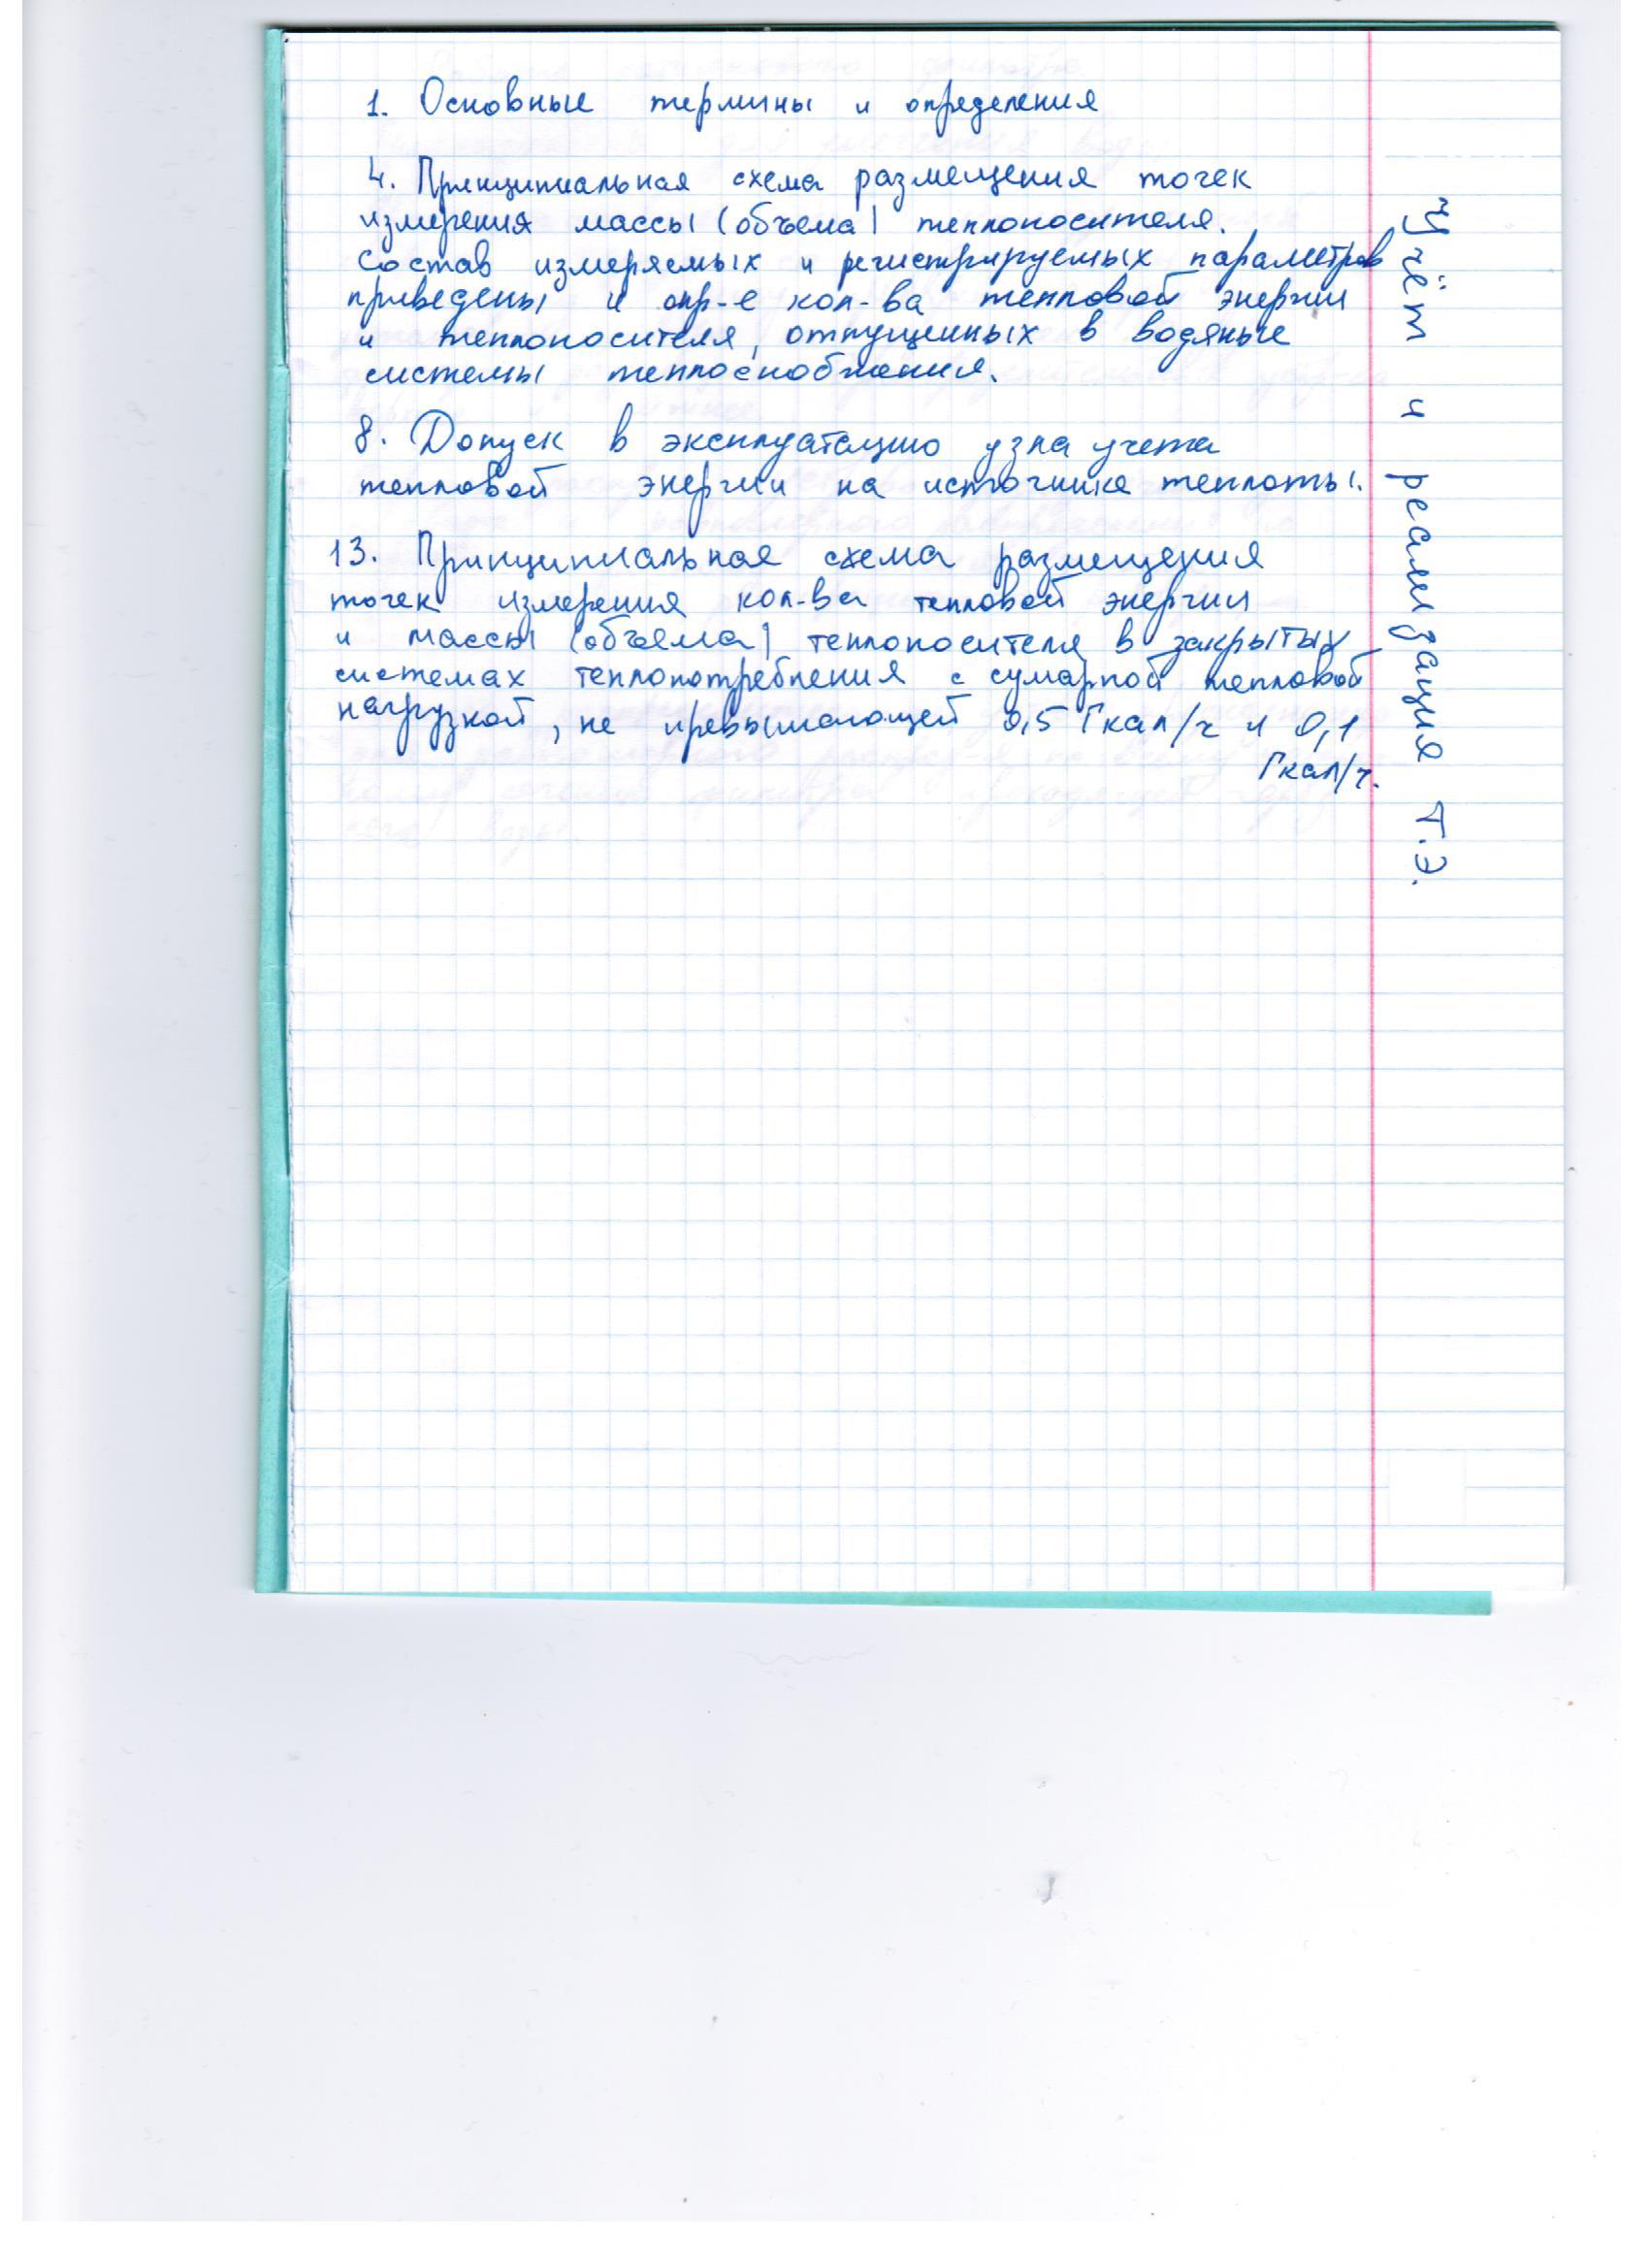 1. Основные термины и определения
4. Принципиальная схема размещения точек
измерения массы (объема) теплоносителя.
Состав измеряемых и регистрируемых параметров
приведены и опр-е кол-ва тепловой энергии
и теплоносителя, отпущенных в водяные
системы теплоснобжения.
8. Допуск в эксплуатацию узла учета
тепловой энергии на источнике теплоты.
13. Принципиальная схема размещения
точек измерения кол-ва тепловой энергии
и массы (объема) теплоносителя в закрытых
системах теплопотребления с сумарной тепловой
нагрузкой, не превышающей 0,5 Гкал/ч и 0,1
Гкал/ч.
Учёт и реализация Т.Э.